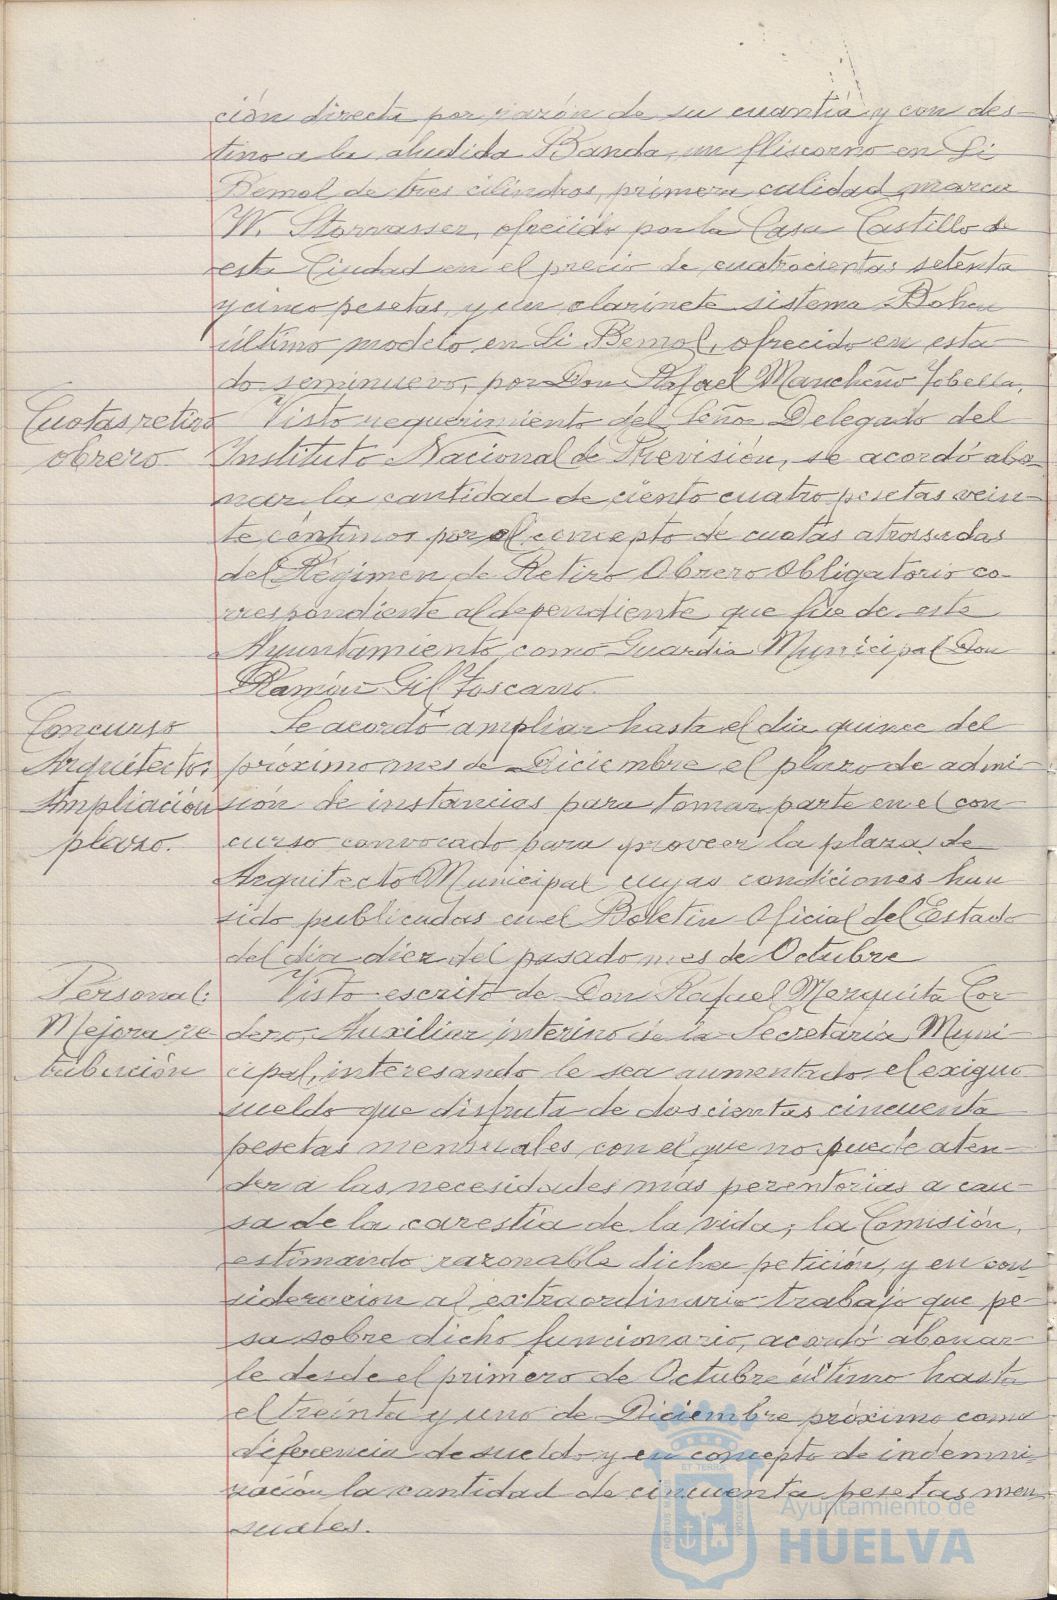 ción directa por razón de su cuantía y con des-
tino a la aludida Banda, un fliscorno en Si
Bemol de tres cilindros, primera calidad, marca
W. Stowasser, ofrecido por la Casa Castillo de
esta Ciudad en el precio de cuatrocientas setenta
y cinco pesetas, y un clarinete sistema Bohen
último modelo en Si Bemol, ofrecido en esta-
do seminuevo, por Don Rafael Mancheño
Cuotas retiro
obrero
Visto requerimiento del Señor Delegado del
Instituto Nacional de Previsión, se acordó abo-
nar la cantidad de ciento cuatro pesetas vein-
te céntimos por el concepto de cuotas atrasadas
del Régimen de Retiro Obrero Obligatorio co-
rrespondiente al dependiente que fue de este
Ayuntamiento como Guardia Municipal Don
Ramón Gil Toscano.
Concurso
Arquitecto:
Ampliación
plazo.
Se acordó ampliar hasta el día quince del
próximo mes de Diciembre el plazo de admi-
sión de instancias para tomar parte en el con-
curso convocado para proveer la plaza de
Arquitecto Municipal cuyas condiciones han
sido publicadas en el Boletín Oficial del Estado
del día diez del pasado mes de Octubre
Personal:
Mejora re-
tribución
Visto escrito de Don Rafael Mezquita Cor-
dero, Auxiliar interino de la Secretaría Muni-
cipal, interesando le sea aumentado el exiguo
sueldo que disfruta de doscientas cincuenta
pesetas mensuales, con el que no puede aten-
der a las necesidades más perentorias a cau-
sa de la carestía de la vida; la Comisión,
estimando razonable dicha petición, y en con-
sideración al extraordinario trabajo que pe-
sa sobre dicho funcionario, acordó abonar-
le desde el primero de Octubre último hasta
el treinta y uno de Diciembre próximo como
diferencia de sueldo y en concepto de indemni-
zación la cantidad de cincuenta pesetas men-
suales.
Ayuntamiento de
HUELVA